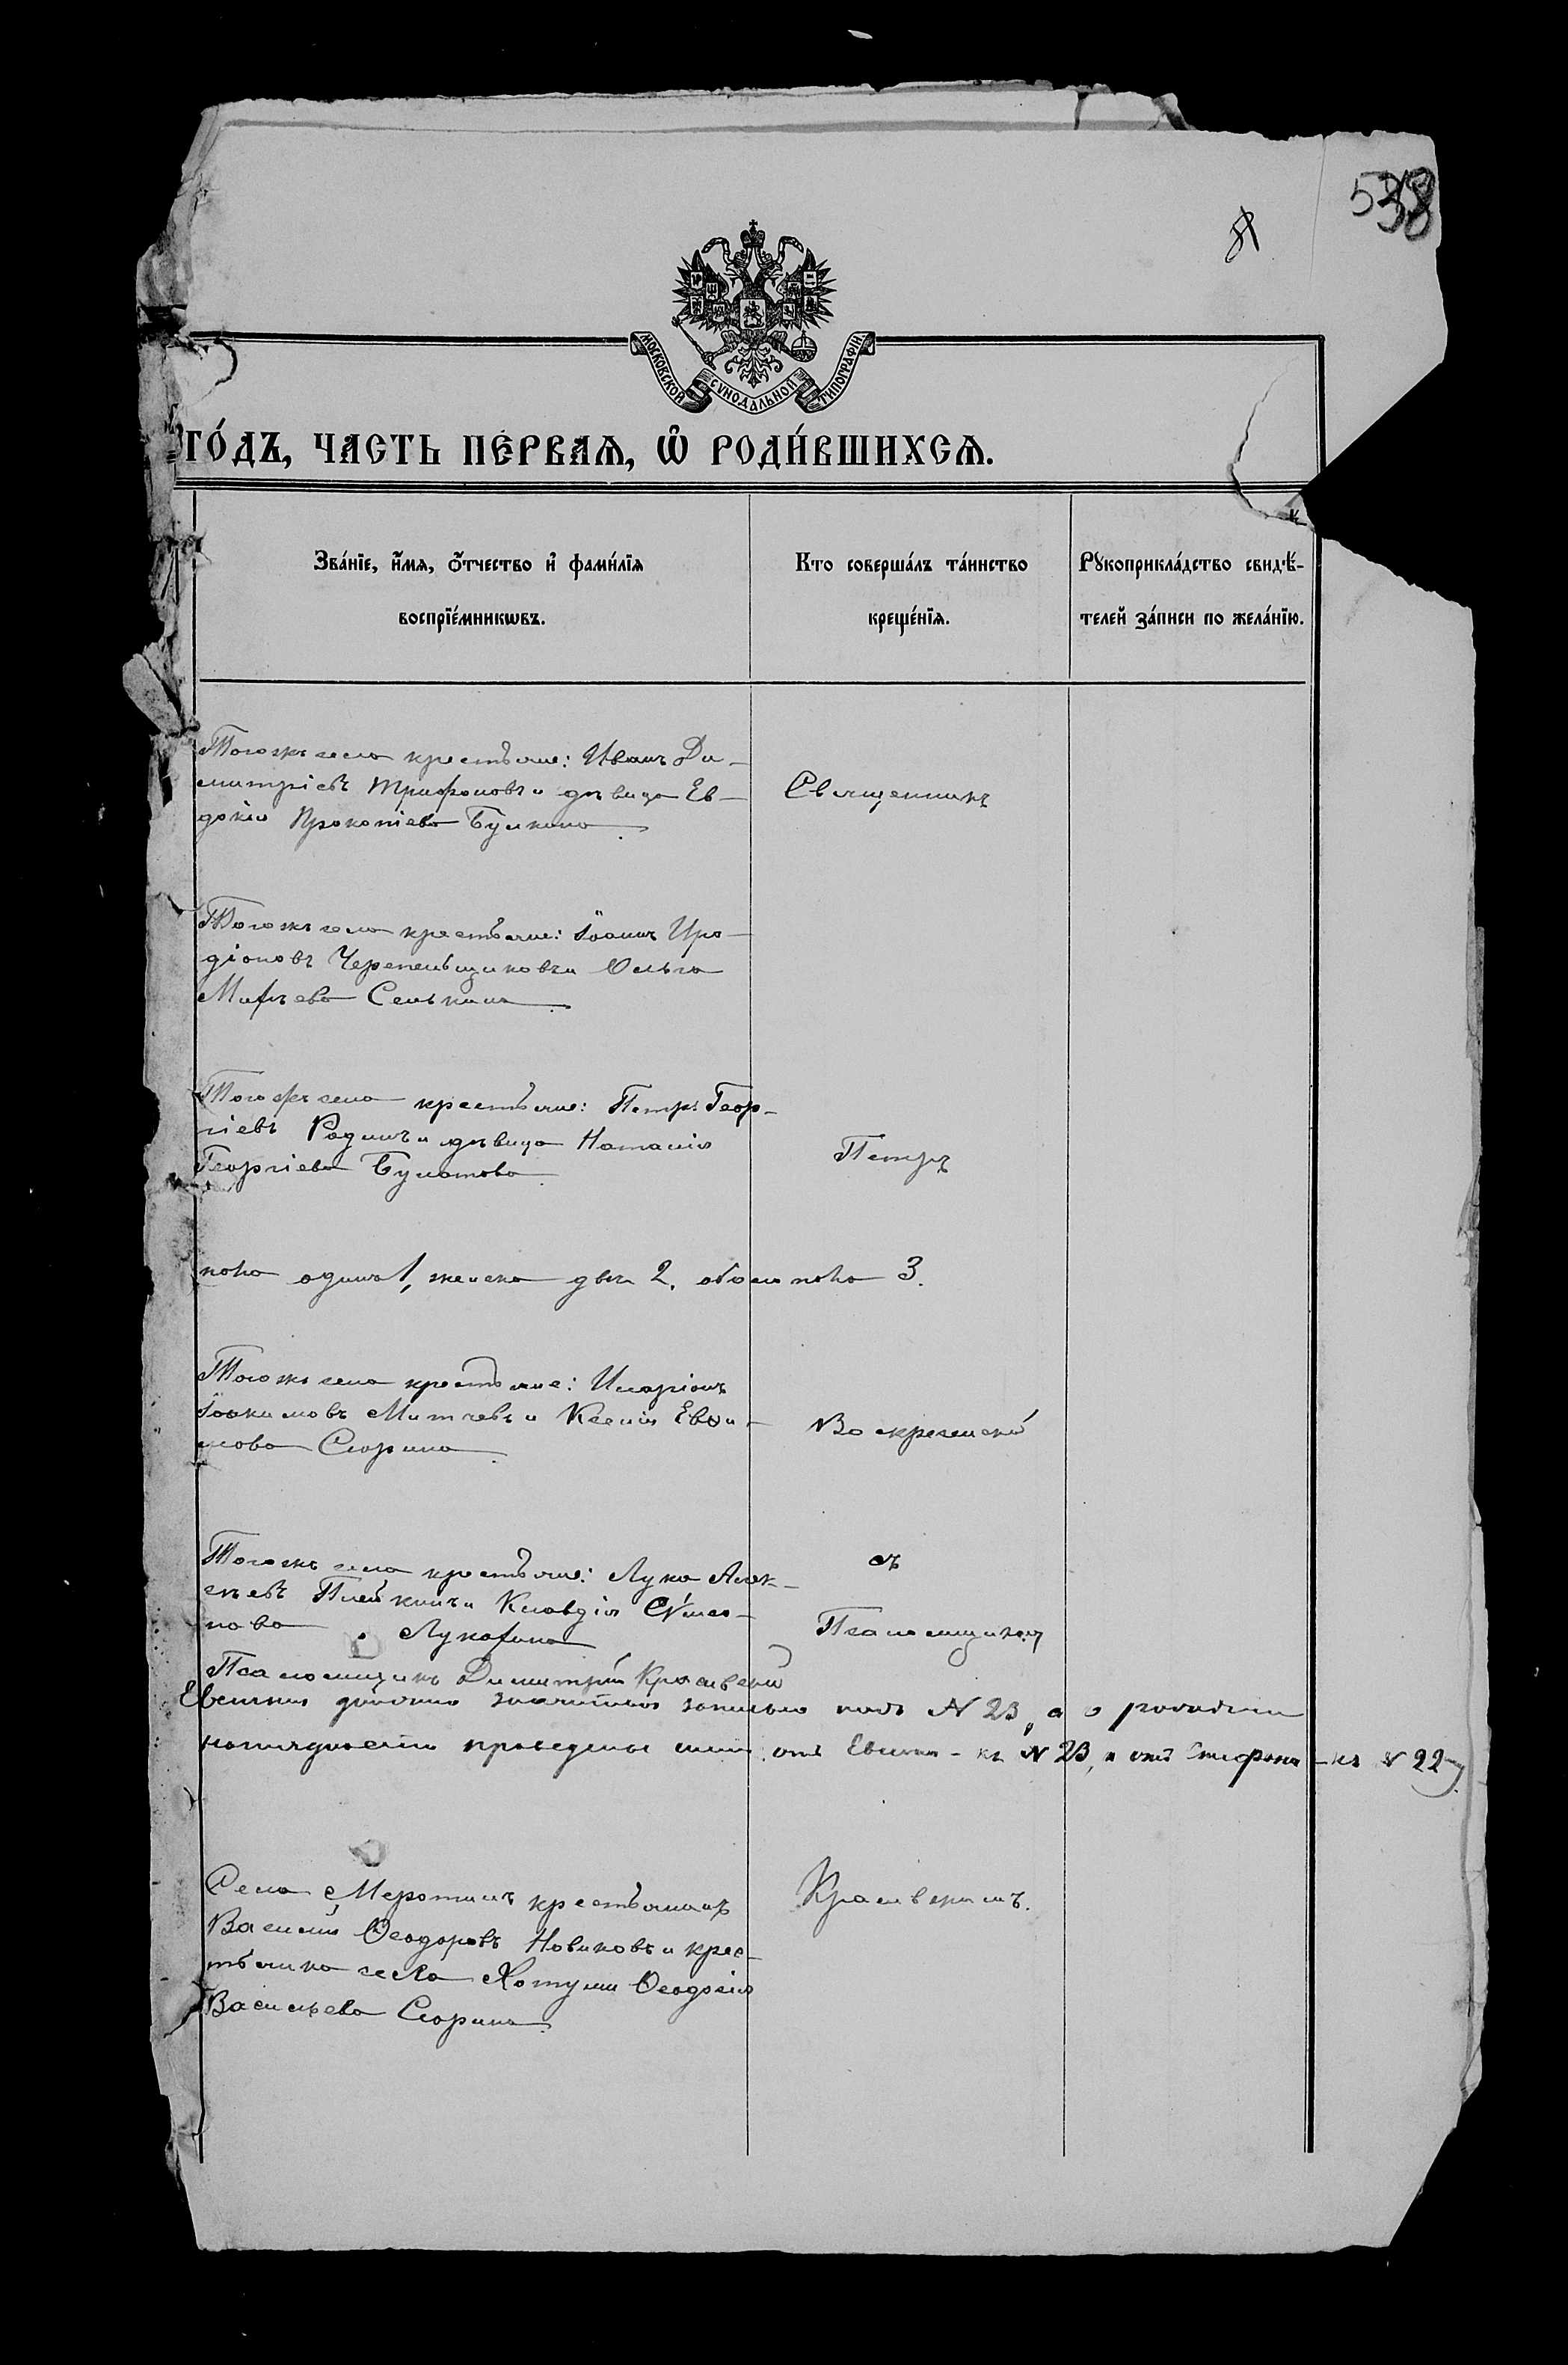 538
МОСКОВСКОЙ СѴНОДАЛЬНОЙ ТИПОГРАФІИ
ГО́ДЪ, ЧАСТЬ ПЕ́РВАЯ, Ѡ҆ РОДИ́ВШИХСЯ.
Зва́нїе, и҆́мя, о҆́тчество и҆ фами́лїя
воспрїе́мникѡвъ.
Кто соверша́лъ та́инство
креще́нїя.
Рꙋкоприкла́дство свидѣ́-
телей за́писи по жела́нїю.
Тогожъ села крестьяне: Иванъ Ди-
митріевъ Трифоновъ и дѣвица Ев-
докія Прокопіева Булкина
Священникъ
Тогожъ села крестьяне: Іоаннъ Иро-
діоновъ Черепенщиковъ и Ольга
Сенькина
Тогожъ села крестьяне: Петръ Геор-
гіевъ Родинъ и дѣвица Наталія
Георгіева Булатова
Петръ
пола одинъ 1, женска двѣ 2, обоего пола 3.
Тогожъ села крестьяне: Иларіонъ
Іоакимовъ Митяевъ и Ксенія Евѳи-
мова Сюрина
Воскресенскій
Тогожъ села крестьяне: Лука Алек-
сѣевъ Плешкинъ и Клавдія Сѵмео-
нова Лукахина
съ
Псаломщикомъ
Псаломщикъ Димитрій Красивскій
записью подъ N 23, а о
проведены линіи отъ - къ N 23, и отъ Стефана - къ N 22му
Села Меротинъ крестьянинъ
Василій Ѳеодоровъ Новиковъ и крес-
тьянка села Хотуши Ѳеодосія
Васильева Сюрина
Красивскимъ.